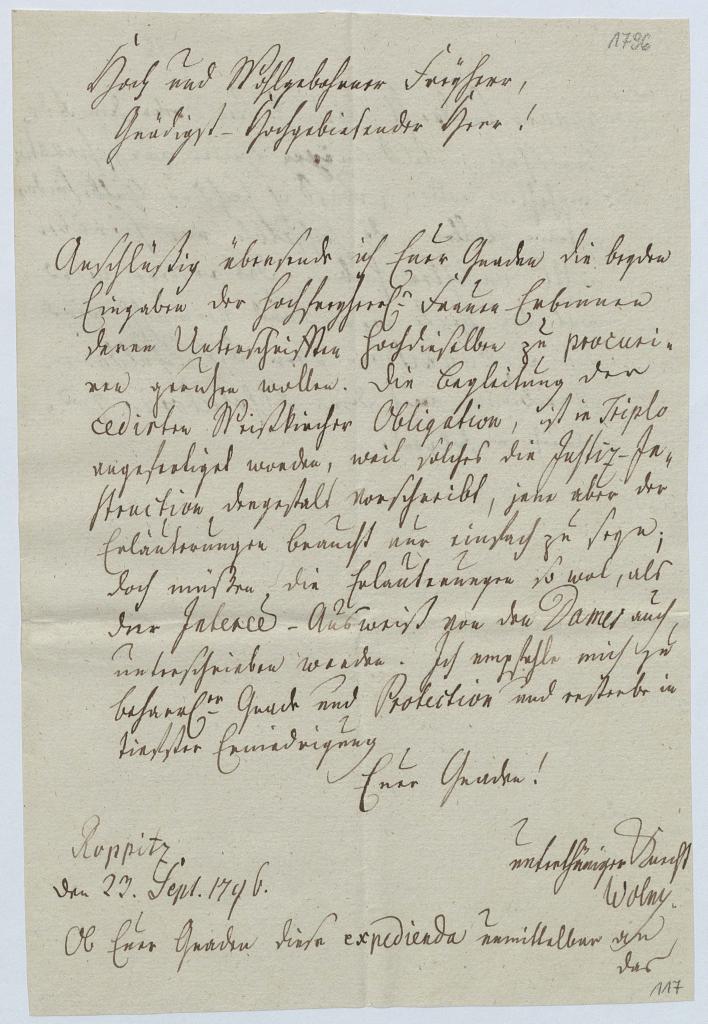 1796
Hoch und Wohlgebohrner Freyherr,
Gnädigst-Hochgebietender Herr!
Anschlüßig übersende ich Euer Gnaden die beyden
Eingaben der Hochfreyherrl. Frauen Erbinnen
deren Unterschrifften Hochdieselben zu procuri-
ren geruhen wollen. Die Begleitung der
cedirten Weißkircher Obligation, ist in Triplo
angefertiget worden, weil solches die Justiz-In-
struction dergestalt vorschreibt, jene aber der
Erläuterungen braucht nur einfach zu seyn;
doch müßen die Erläuterungen so wol, als
der Interce-Ausweiß von den Dames auch
unterschrieben werden. Ich empfehle mich zu
beharrl. Gnade und Protection und ersterbe in
tiefster Erniedrigung
Euer Gnaden!
Roppitz
den 23. Sept. 1796.
unterthäniger Knecht
Wolny.
Ob Euer Gnaden diese expedienda unmittelbar an
das
117